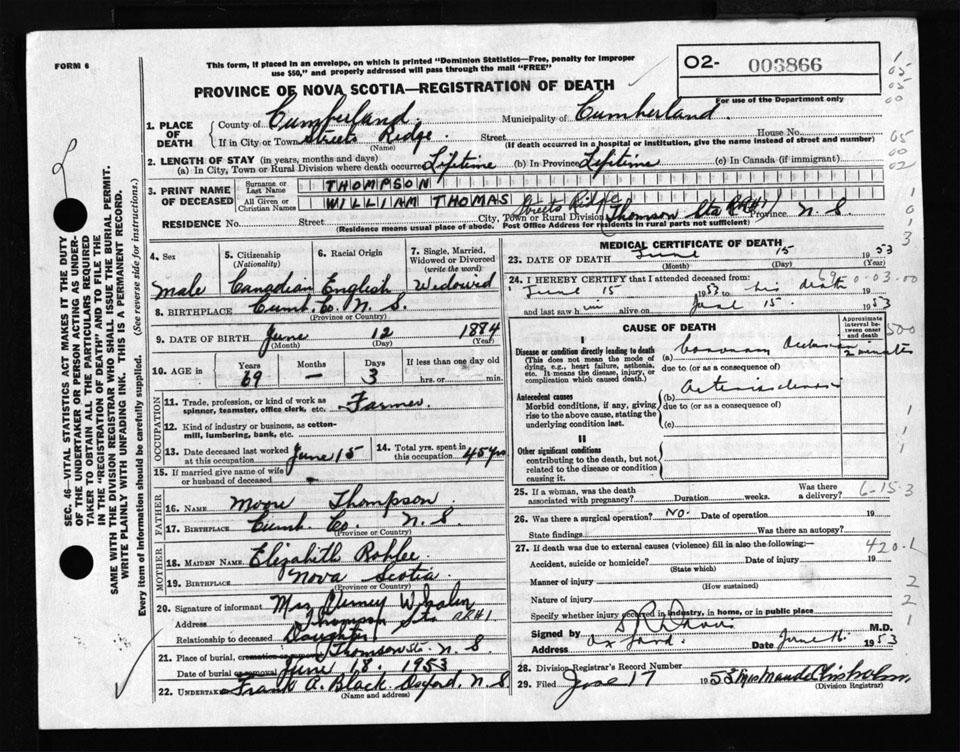 FORM 6
This form, if placed in an envelope, on which is printed "Dominion Statistics—Free, penalty for improper
use $50," and properly addressed will pass through the mail "FREE"
O2- 003866
For use of the Department only
PROVINCE OF NOVA SCOTIA—REGISTRATION OF DEATH
1. PLACE OF DEATH
County of Cumberland Municipality of Cumberland
If in City or Town Streets Ridge Street House No.
(Name) (If death occurred in a hospital or institution, give its name instead of street and number)
2. LENGTH OF STAY (in years, months and days)
(a) In City, Town or Rural Division where death occurred Lifetime (b) In Province Lifetime (c) In Canada (if immigrant)
3. PRINT NAME OF DECEASED
Surname or Last Name THOMPSON
All Given or Christian Names WILLIAM THOMAS
RESIDENCE No. Street City, Town or Rural Division Streets Ridge (Thomson Sta RR#1) Province N. S.
(Residence means usual place of abode. Post Office Address for residents in rural parts not sufficient)
4. Sex
Male
5. Citizenship (Nationality)
Canadian
6. Racial Origin
English
7. Single, Married, Widowed or Divorced (write the word)
Widowed
8. BIRTHPLACE Cumb. Co. N. S.
(Province or Country)
9. DATE OF BIRTH June 12 1884
(Month) (Day) (Year)
10. AGE in Years Months Days If less than one day old
69 — 3 hrs. or min.
OCCUPATION
11. Trade, profession, or kind of work as spinner, teamster, office clerk, etc. Farmer.
12. Kind of industry or business, as cotton-mill, lumbering, bank, etc.
13. Date deceased last worked at this occupation June 15
14. Total yrs. spent in this occupation 45 yrs
15. If married give name of wife or husband of deceased
FATHER
16. Name Moore Thompson
17. Birthplace Cumb. Co. N. S.
(Province or Country)
MOTHER
18. Maiden Name Elizabeth
19. Birthplace Nova Scotia
(Province or Country)
20. Signature of informant Mrs
Address Thompson Sta RR#1
Relationship to deceased Daughter
21. Place of burial, cremation or removal Thomson Sta. N. S.
Date of burial or removal June 18. 1953
22. Undertaker Frank A. Black. Oxford, N. S.
(Name and address)
MEDICAL CERTIFICATE OF DEATH
23. DATE OF DEATH June 15 1953
(Month) (Day) (Year)
24. I HEREBY CERTIFY that I attended deceased from:
June 15 1953 to his death 19
and last saw him alive on June 15. 1953
CAUSE OF DEATH
Approximate interval between onset and death
I
Disease or condition directly leading to death
(This does not mean the mode of dying, e.g., heart failure, asthenia, etc. It means the disease, injury, or complication which caused death.)
(a) Coronary 2 minutes
due to (or as a consequence of)
Antecedent causes
Morbid conditions, if any, giving rise to the above cause, stating the underlying condition last.
(b)
due to (or as a consequence of)
(c)
II
Other significant conditions
contributing to the death, but not related to the disease or condition causing it.
25. If a woman, was the death associated with pregnancy? Duration weeks. Was there a delivery?
6-15-3
26. Was there a surgical operation? NO. Date of operation 19
State findings Was there an autopsy?
27. If death was due to external causes (violence) fill in also the following:
420.1
Accident, suicide or homicide? Date of injury 19
(State which)
Manner of injury
(How sustained)
Nature of injury
Specify whether injury occurred in industry, in home, or in public place
Signed by M.D.
Address Oxford. Date June 1953
28. Division Registrar's Record Number
29. Filed June 17 1953 Mrs Maude Chisholm
(Division Registrar)
SEC. 46—VITAL STATISTICS ACT MAKES IT THE DUTY
OF THE UNDERTAKER OR PERSON ACTING AS UNDER-
TAKER TO OBTAIN ALL THE PARTICULARS REQUIRED
IN THE "REGISTRATION OF DEATH" AND TO FILE THE
SAME WITH THE DIVISION REGISTRAR WHO SHALL ISSUE THE BURIAL PERMIT.
WRITE PLAINLY WITH UNFADING INK. THIS IS A PERMANENT RECORD.
Every item of information should be carefully supplied. (See reverse side for instructions.)